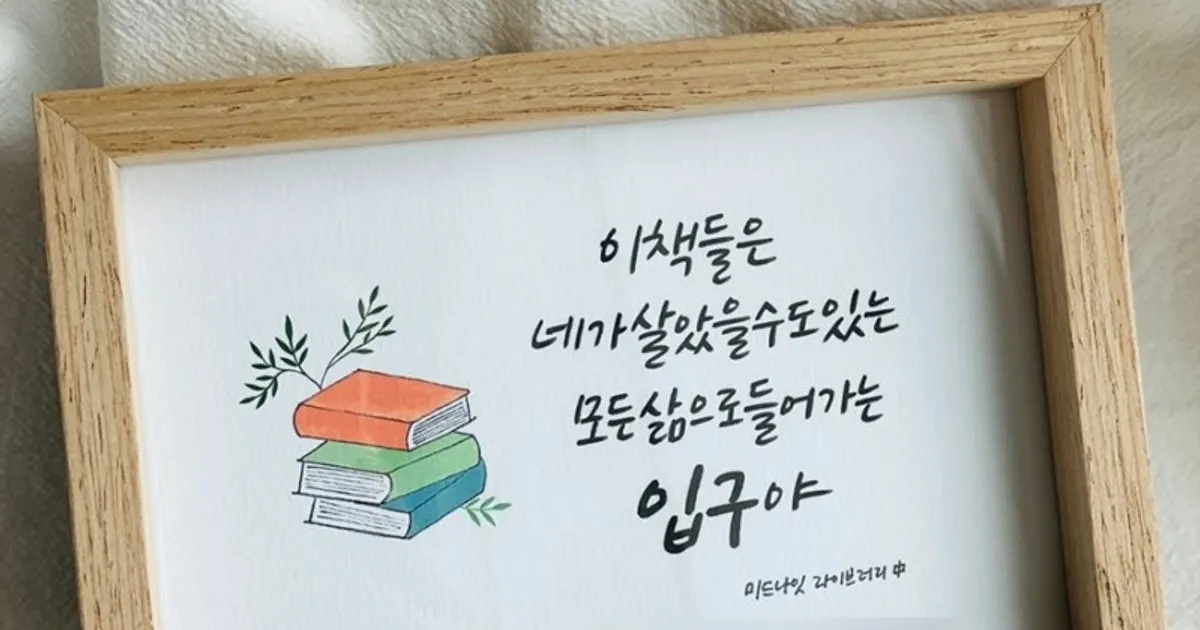 이 책들은
네가 살았을 수도 있는
모든 삶으로 들어가는
입구야
미드나잇 라이브러리 中